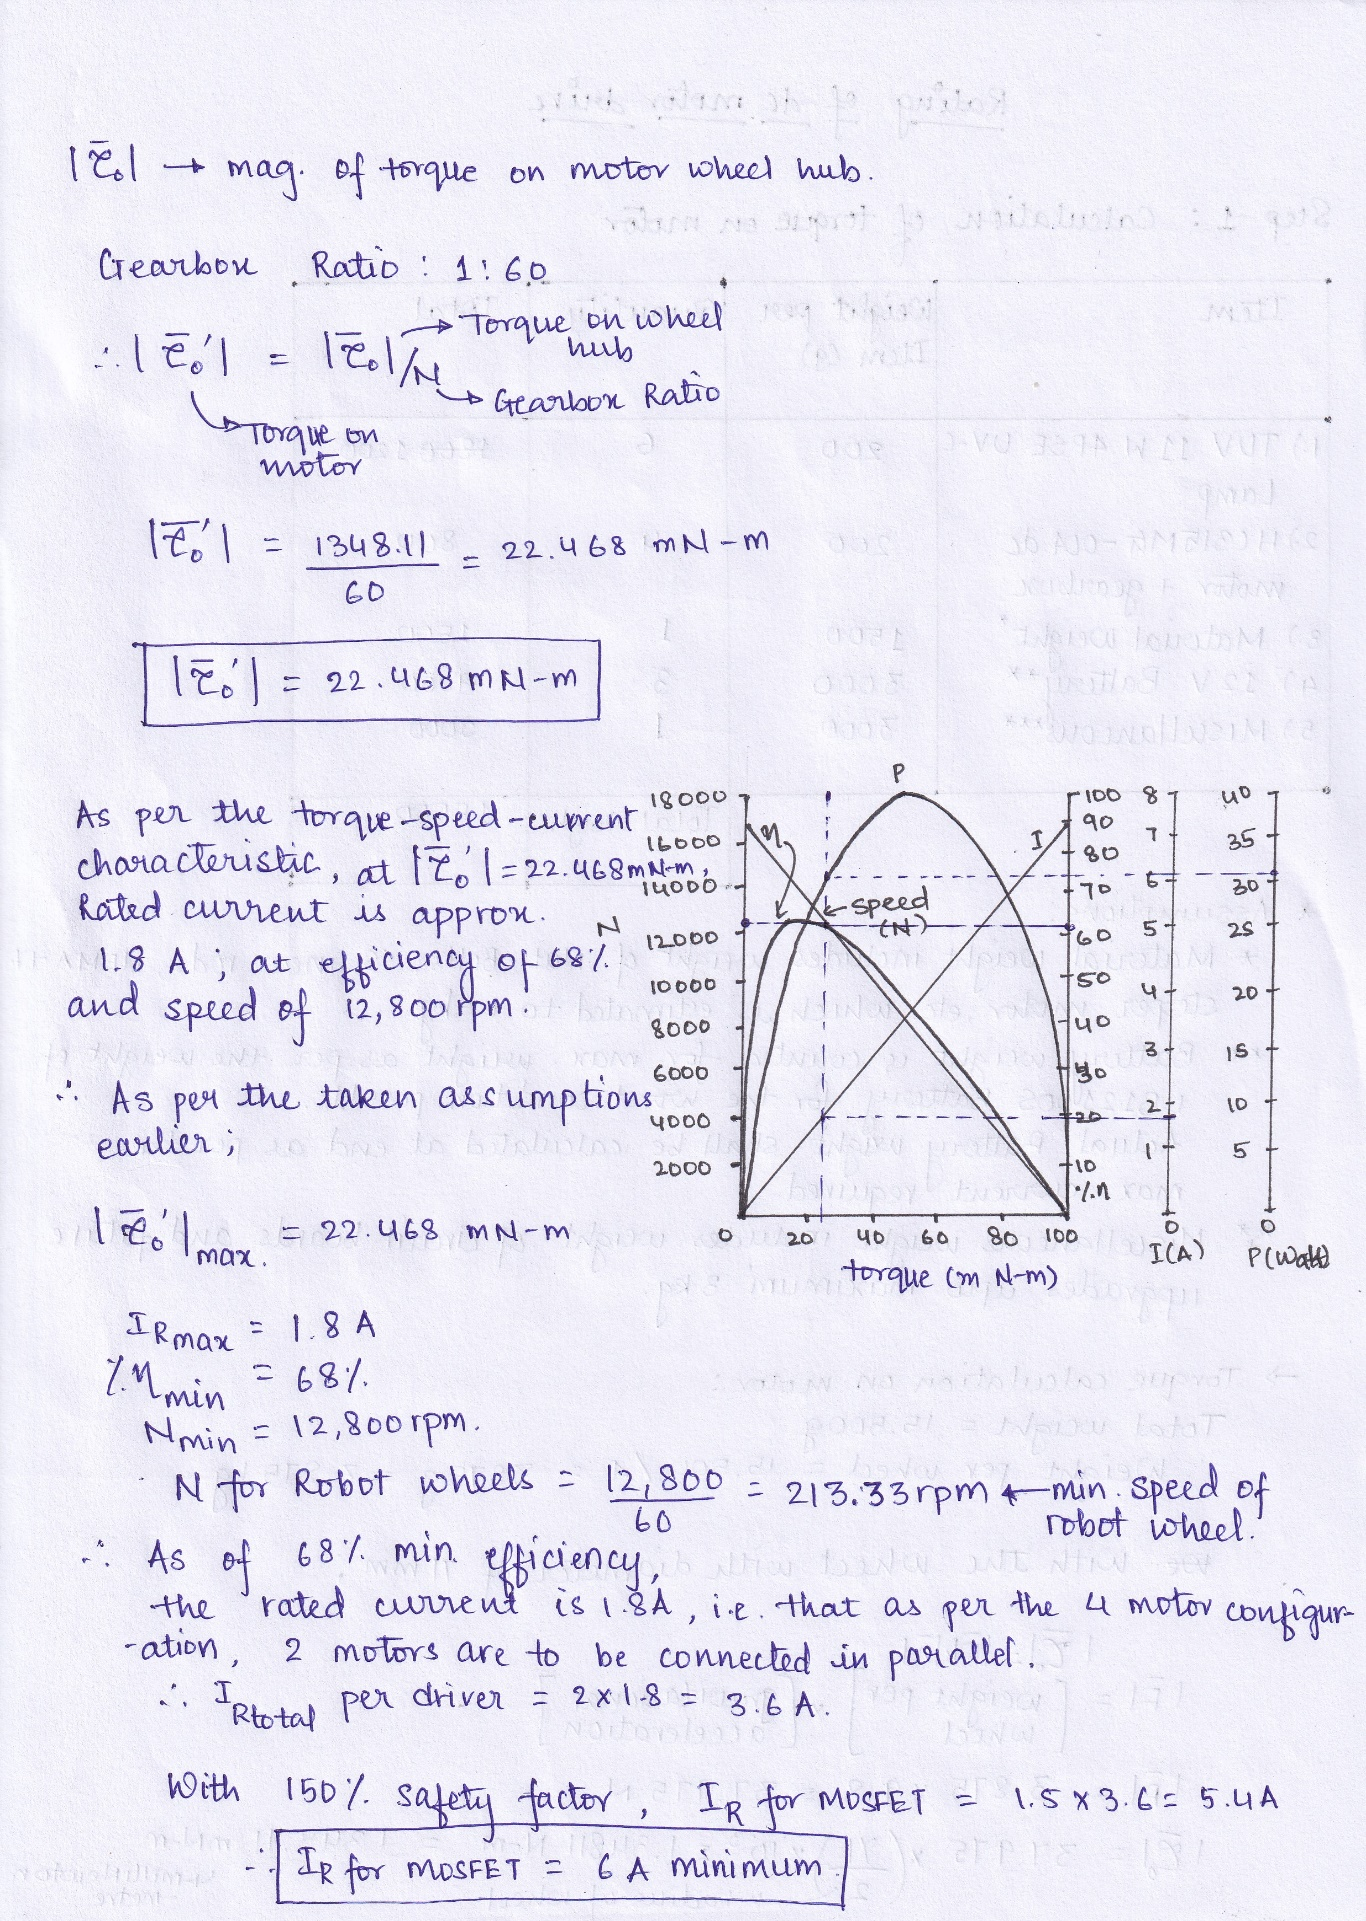 |τ̄₀| → mag. of torque on motor wheel hub.
Gearbox Ratio : 1:60
∴ |τ̄₀'| = |τ̄₀|/N
Torque on wheel
hub
Gearbox Ratio
Torque on
motor
|τ̄₀'| = 1348.11/60 = 22.468 mN-m
|τ̄₀'| = 22.468 mN-m
As per the torque-speed-current
characteristic, at |τ̄₀'| = 22.468mN-m,
Rated current is approx.
1.8 A ; at efficiency of 68%
and speed of 12,800 rpm.
∴ As per the taken assumptions
earlier ;
|τ̄₀'|max. = 22.468 mN-m
P
η
I
speed
(N)
N
18000
16000
14000
12000
10000
8000
6000
4000
2000
0 20 40 60 80 100
torque (m N-m)
100
90
80
70
60
50
40
30
20
10
%η
8
7
6
5
4
3
2
1
0
I(A)
40
35
30
25
20
15
10
5
0
P(Watt)
IRmax = 1.8 A
%ηmin = 68%
Nmin = 12,800rpm.
N for Robot wheels = 12,800/60 = 213.33rpm ← min. speed of
robot wheel.
∴ As of 68% min. efficiency,
the rated current is 1.8A, i.e. that as per the 4 motor configur-
-ation, 2 motors are to be connected in parallel.
∴ IRtotal per driver = 2x1.8 = 3.6 A.
With 150% safety factor, IR for MOSFET = 1.5 x 3.6 = 5.4A
∴ IR for MOSFET = 6 A minimum